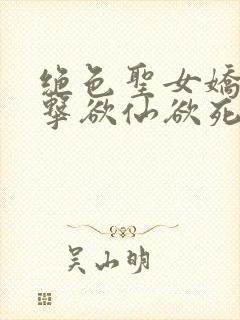 絕色聖女嬌
擊欲仙欲死
吴山明